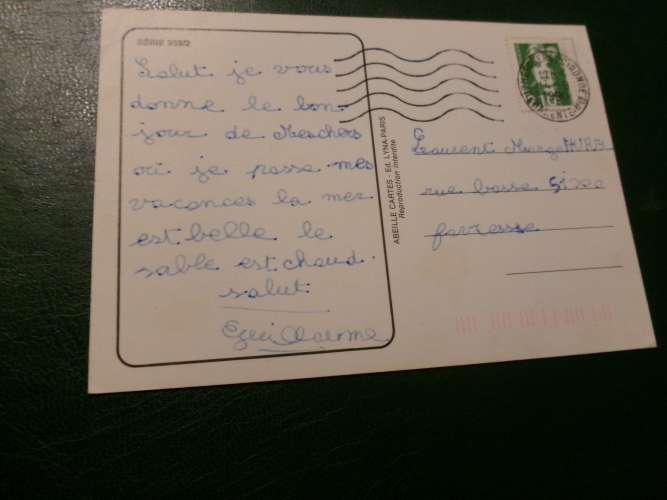 Salut je vous
donne le bon
jour de Meschers
ou je passe mes
vacances la mer
est belle le
sable est chaud.
salut
Guillaume
ABEILLE CARTES - Ed. LYNA-PARIS
Reproduction interdite
Laurent
rue basse